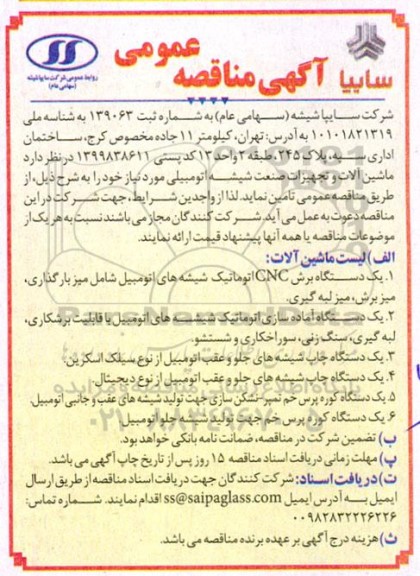 سایپا
آگهی مناقصه عمومی
روابط عمومی شرکت سایپا شیشه
(سهامی عام)
شرکت سایپا شیشه (سهامی عام) به شماره ثبت ۱۳۹۰۶۳ به شناسه ملی
۱۰۱۰۱۸۲۱۳۱۹ به آدرس: تهران، کیلومتر ۱۱ جاده مخصوص کرج، ساختمان
اداری سپه، پلاک ۲۴۵، طبقه ۳ واحد ۱۳ کد پستی ۱۳۹۹۸۳۸۶۱۱ در نظر دارد
ماشین آلات و تجهیزات صنعت شیشه اتومبیلی مورد نیاز خود را به شرح ذیل، از
طریق مناقصه عمومی تامین نماید. لذا از واجدین شرایط، جهت شرکت در این
مناقصه دعوت به عمل می آید. شرکت کنندگان مجاز می باشند نسبت به هر یک از
موضوعات مناقصه یا همه آنها پیشنهاد قیمت ارائه نمایند.
الف) لیست ماشین آلات:
۱. یک دستگاه برش CNC اتوماتیک شیشه های اتومبیل شامل میز بارگذاری،
میز برش، میز لبه گیری.
۲. یک دستگاه آماده سازی اتوماتیک شیشه های اتومبیل با قابلیت برشکاری،
لبه گیری، سنگ زنی، سوراخکاری و شستشو.
۳. یک دستگاه چاپ شیشه های جلو و عقب اتومبیل از نوع سیلک اسکرین.
۴. یک دستگاه چاپ شیشه های جلو و عقب اتومبیل از نوع دیجیتال.
۵. یک دستگاه کوره پرس خم تمپر-نشکن سازی جهت تولید شیشه های عقب و جانبی اتومبیل.
۶. یک دستگاه کوره پرس خم جهت تولید شیشه جلو اتومبیل
ب) تضمین شرکت در مناقصه، ضمانت نامه بانکی خواهد بود.
پ) مهلت زمانی دریافت اسناد مناقصه ۱۵ روز پس از تاریخ چاپ آگهی می باشد.
ت) دریافت اسناد: شرکت کنندگان جهت دریافت اسناد مناقصه از طریق ارسال
ایمیل به آدرس ایمیل ss@saipaglass.com اقدام نمایند. شماره تماس:
۰۰۹۸۲۸۳۲۲۲۶۲۲۶
ث) هزینه درج آگهی بر عهده برنده مناقصه می باشد.